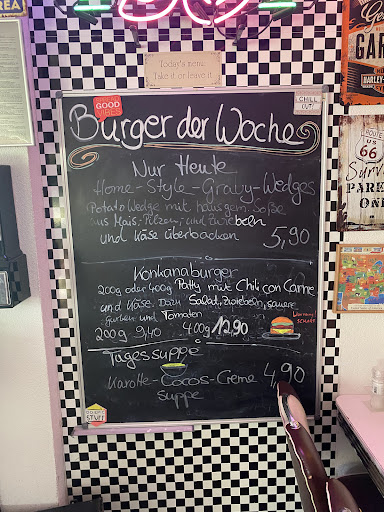 REA
Today's menu
Take it or leave it
GOOD
VIBES
CHILL
OUT!
Burger der Woche
Nur Heute
Home-Style-Graby-Wedges
Potato Wedge mit hausgem. Soße
aus Mais, Pilzen, und Zwiebeln
und Käse überbacken 5,90
Konkanaburger
200g oder 400g Patty mit Chili con Carne
und Käse. Dazu Salat, Zwiebeln, saure
Gurken und Tomaten
200g 9,40 400g 12,90
SCHARF
Tagessuppe
Karotte-Cocos-Creme 4,90
suppe
STUFF
GA
HARLEY
ROUTE
US
66
PAR
ON